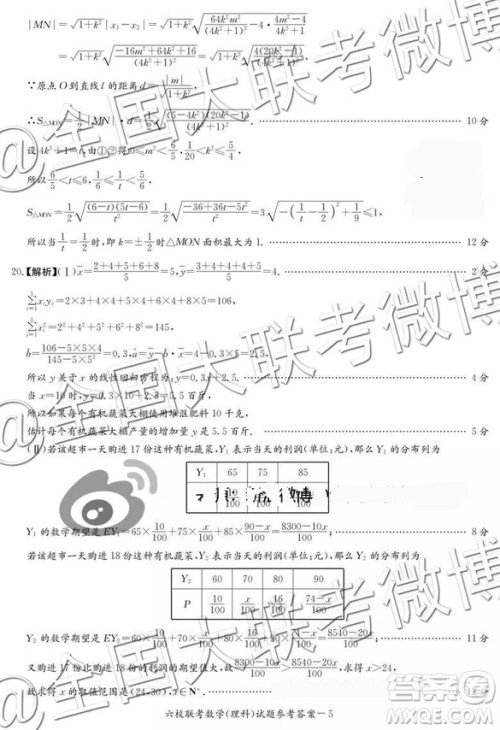 |MN|=√(1+k²)|x₁-x₂|=√(1+k²)√(64k²m²/(4k²+1)²-4·(4m²-4)/(4k²+1))
=√(1+k²)√((-16m²+64k²+16)/(4k²+1)²)=√(1+k²)√(4(20k²-1)/
∵原点O到直线l的距离d=|m|/√(1+k²),
∴S△MON=1/2|MN|·d=1/2√((5-4k²)(20k²-1)/(4k²+1)²). 10分
设4k²+1=t,由①②得0≤m²<6/5,1/20<k²≤5/4,
所以6/5<t≤6,1/6≤1/t<5/6,
S△MON=1/2√((6-t)(5t-6)/t²)=1/2√((-36+36t-5t²)/t²)=3√(-(1/t-1/2)²+1/9)≤1.
所以当1/t=1/2时,即k=±1/2时△MON面积最大为1. 12分
20.【解析】(Ⅰ)x̄=(2+4+5+6+8)/5=5,ȳ=(3+4+4+4+5)/5=4 2分
∑xᵢyᵢ=2×3+4×4+5×4+6×4+8×5=106,
∑xᵢ²=2²+4²+5²+6²+8²=145,
b=(106-5×5×4)/(145-5×5²)=0.3,a=ȳ-b·x̄=4-0.3×5=2.5,
所以y关于x的线性回归方程为:y=0.3x+2.5. 4分
所以如果每个有机蔬菜大棚使用堆沤肥料10千克,
估计每个有机蔬菜大棚产量的增加量y是5.5百斤. 5分
(Ⅱ)若该超市一天购进17份这种有机蔬菜,Y₁表示当天的利润(单位:元),那么Y₁的分布列为
Y₁ 65 75 85
10/100 x/100 (90-x)/100
Y₁的数学期望是EY₁=65×10/100+75×x/100+85×(90-x)/100=(8300-10x)/100; 8分
若该超市一天购进18份这种有机蔬菜,Y₂表示当天的利润(单位:元),那么Y₂的分布列为
Y₂ 60 70 80 90
P 10/100 x/100 16/100 (74-x)/100
Y₂的数学期望是EY₂=60×10/100+70×x/100+80×16/100+90×(74-x)/100=(8540-20x)/100; 11分
又购进17份比购进18份的利润的期望值大,故(8300-10x)/100>(8540-20x)/100,求得x>24,
故求得x的取值范围是(24,30),x∈N*.
六校联考数学(理科)试题参考答案-5
@全国大联考微博
@全国大联考微博
@全国大联考微博